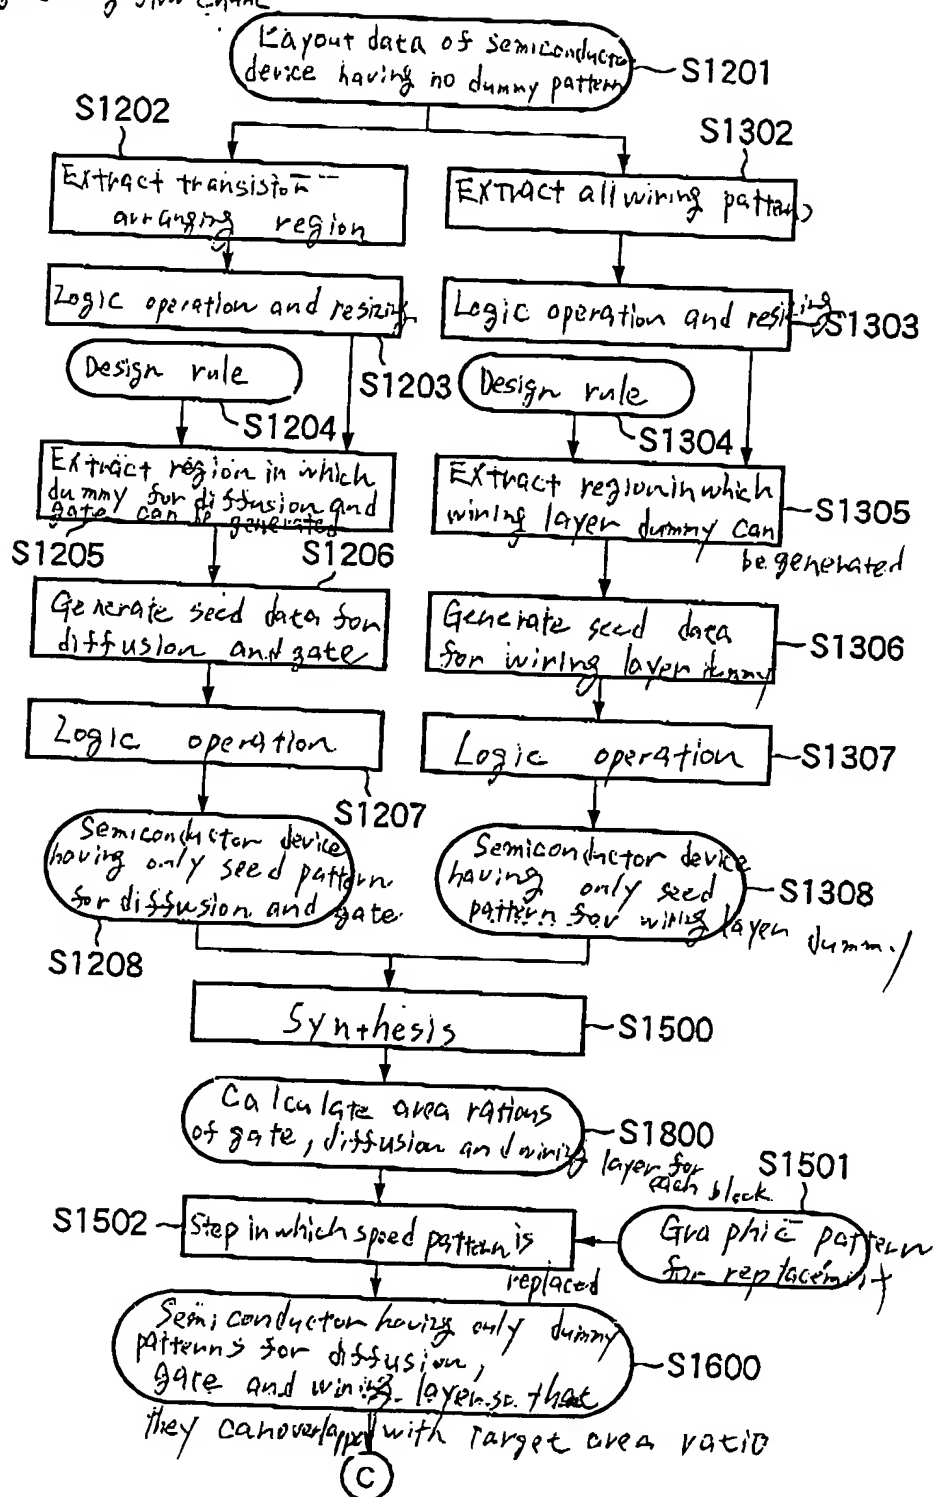 flow chart
Layout data of semiconductor
device having no dummy pattern
S1201
S1202
S1302
Extract transistor
arranging region
Extract all wiring patterns
Logic operation and resizing
Logic operation and resizing
S1303
Design rule
S1203
Design rule
S1204
S1304
Extract region in which
dummy for diffusion and
gate can be generated
Extract region in which
wiring layer dummy can
be generated
S1305
S1205
S1206
Generate seed data for
diffusion and gate
Generate seed data
for wiring layer dummy
S1306
Logic operation
Logic operation
S1307
S1207
Semiconductor device
having only seed pattern
for diffusion and gate.
Semiconductor device
having only seed
pattern for wiring layer dummy
S1308
S1208
Synthesis
S1500
Calculate area rations
of gate, diffusion and wiring layer for
each block.
S1800
S1501
S1502
Step in which speed pattern is
replaced
Graphic pattern
for replacement
Semiconductor having only dummy
patterns for diffusion,
gate and wining layer so that
they can overlapped with Target area ratio
S1600
C